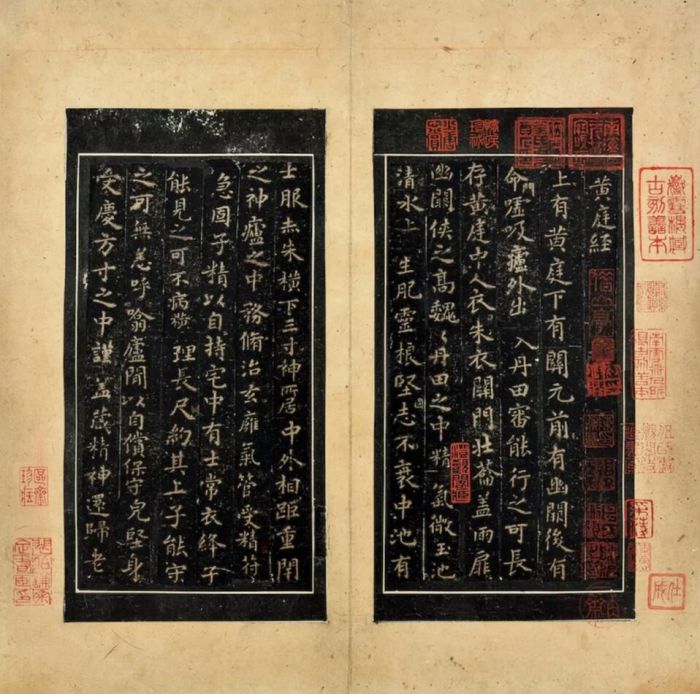 黄庭経
上有黄庭下有關元前有幽闕後有
命門嘘吸廬外出入丹田審能行之可長
存黄庭中人衣朱衣關門壮蘥盖兩扉
幽闕俠之高魏〻丹田之中精氣微玉池
清水上生肥靈根堅志不衰中池有
士服赤朱横下三寸神所居中外相距重閇
之神廬之中務脩治玄廱氣管受精符
急固子精以自持宅中有士常衣絳子
能見之可不病横理長尺約其上子能守
之可無恙呼噏廬間以自償保守完堅身
受慶方寸之中謹盖藏精神還歸老